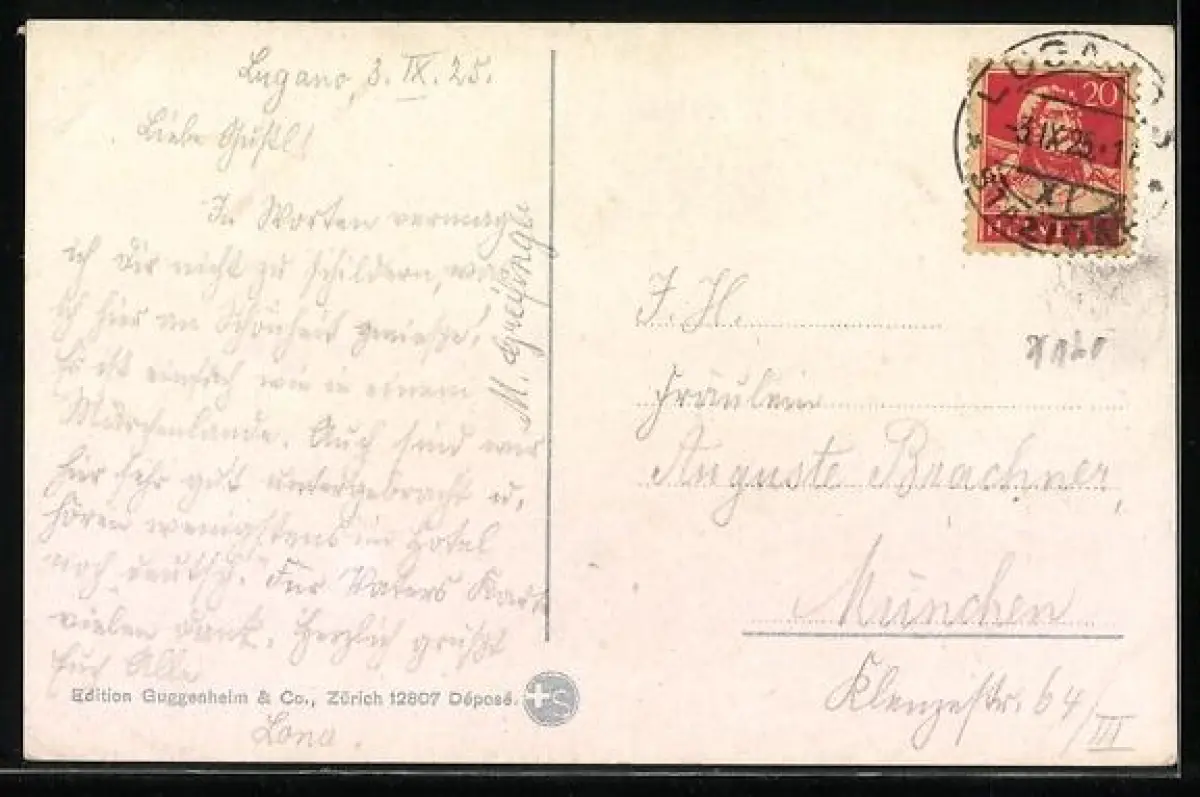 Lugano, 3. IX. 25.
Liebe Gustl!
In Worten vermag
ich Dir nicht zu schildern, was
ich hier an Schönheit genieße!
Es ist einfach wie in einem
Märchenlande. Auch sind wir
hier sehr gut untergebracht u.
hören wenigstens im Hotel
noch deutsch. Für Vaters Karte
vielen Dank. Herzlich grüßt
Euch Alle
Lona.
M.
Edition Guggenheim & Co., Zürich 12807 Déposé.
+S
LUGANO
-3.IX.25.
XV
20
HELVETIA
F. H.
Fräulein
Auguste Brachner,
München
Klenzestr. 64/III